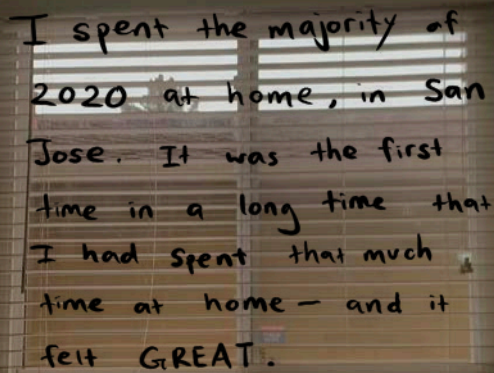 I spent the majority of
2020 at home, in San
Jose. It was the first
time in a long time that
I had spent that much
time at home - and it
felt GREAT.